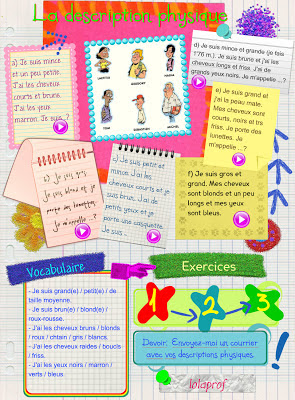 La description physique
a) Je suis mince
et un peu petite.
J'ai les cheveux
courts et bruns.
J'ai les yeux
marron. Je suis...?
d) Je suis mince et grande (je fais
1'76 m.). Je suis brune et j'ai les
cheveux longs et friss. J'ai de
grands yeux noirs. Je m'appelle ...?
e) Je suis grand et
j'ai la peau mate.
Mes cheveux sont
courts, noirs et trs
friss. Je porte des
lunettes. Je
m'appelle ...?
b) Je suis gros.
Je suis blond et je
Je m'appelle ...?
c) Je suis petit et
mince. J'ai les
cheveux courts et je
suis brun. J'ai de
petits yeux et je
porte une casquette.
Je suis...
f) Je suis gros et
grand. Mes cheveux
sont blonds et un peu
longs et mes yeux
sont bleus.
Vocabulaire
- Je suis grand(e) / petit(e) / de
taille moyenne.
- Je suis brun(e) / blond(e) /
roux-rousse.
- J'ai les cheveux bruns / blonds
/ roux / chtain / gris / blancs.
- J'ai les cheveux raides / boucls
/ friss.
- J'ai les yeux noirs / marron /
verts / bleus.
Exercices
1 2 3
Devoir: Envoyez-moi un courrier
avec vos descriptions physiques.
lolaprof